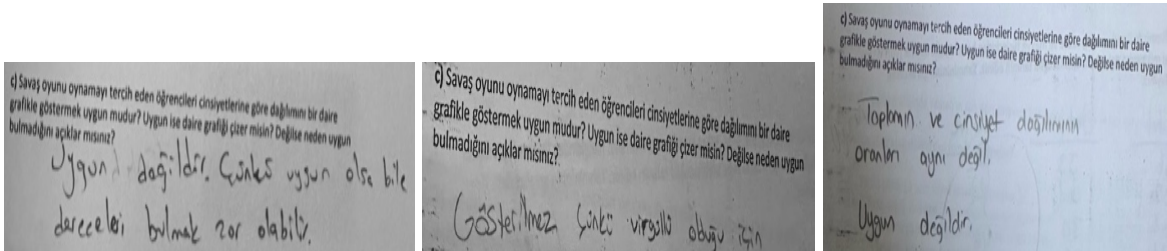 c) Savaş oyunu oynamayı tercih eden öğrencileri cinsiyetlerine göre dağılımını bir daire
grafikle göstermek uygun mudur? Uygun ise daire grafiği çizer misin? Değilse neden uygun
bulmadığını açıklar mısınız?
Uygun değildir. Çünkü uygun olsa bile
dereceleri bulmak zor olabilir.
c) Savaş oyunu oynamayı tercih eden öğrencileri cinsiyetlerine göre dağılımını bir daire
grafikle göstermek uygun mudur? Uygun ise daire grafiği çizer misin? Değilse neden uygun
bulmadığını açıklar mısınız?
Gösterilmez çünkü virgüllü olduğu için
c) Savaş oyunu oynamayı tercih eden öğrencileri cinsiyetlerine göre dağılımını bir daire
grafikle göstermek uygun mudur? Uygun ise daire grafiği çizer misin? Değilse neden uygun
bulmadığını açıklar mısınız?
Toplamın ve cinsiyet dağılımının
oranları aynı değil.
Uygun değildir.